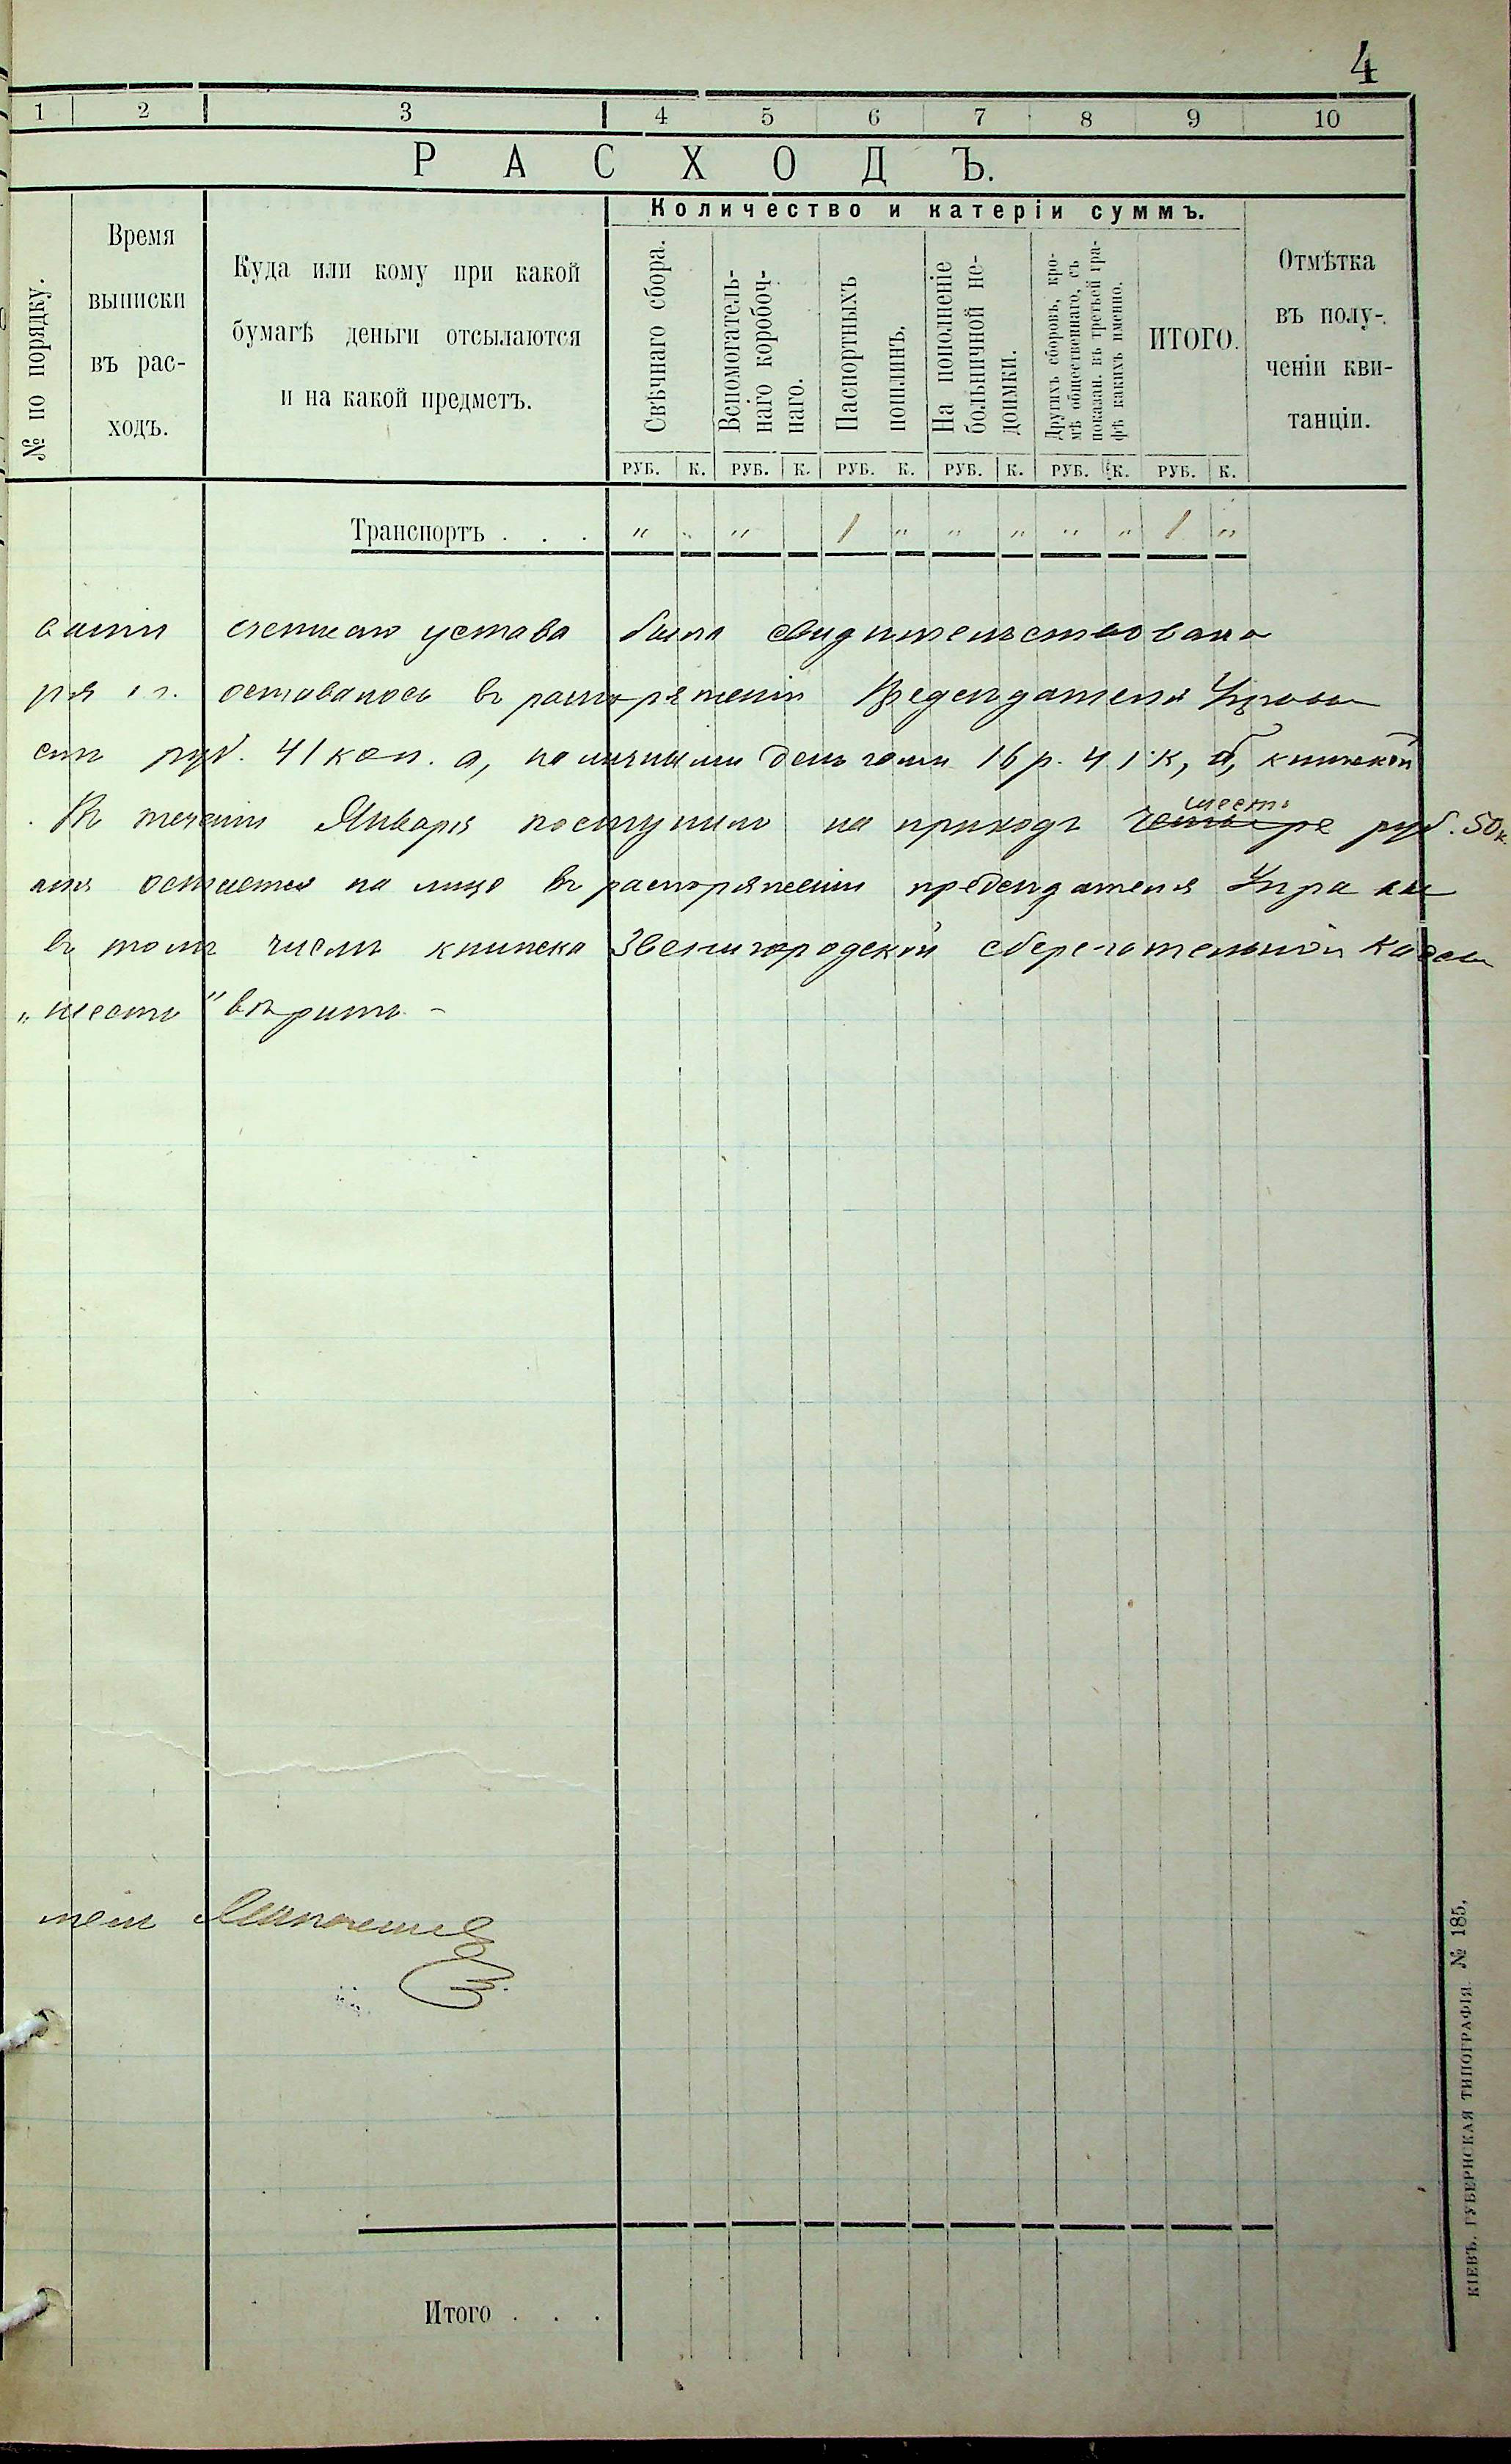 4
1 2 3 4 5 6 7 8 9 10
РАСХОДЪ.
№ по порядку.
Время
выписки
въ рас-
ходъ.
Куда или кому при какой
бумагѣ деньги отсылаются
и на какой предметъ.
Количество и катеріи суммъ.
Свѣчнаго сбора.
Вспомогатель-
наго коробоч-
наго.
Паспортныхъ
пошлинъ.
На пополненіе
больничной не-
доимки.
Другихъ сборовъ, кро-
мѣ общественнаго, съ
показан. въ третьей гра-
фѣ какихъ именно.
ИТОГО.
Отмѣтка
въ полу-
ченіи кви-
танціи.
РУБ. К. РУБ. К. РУБ. К. РУБ. К. РУБ. К. РУБ. К.
Транспортъ . . . " " " 1 " " " " " 1 "
счетнаго устава была свидѣтельствована
ря с. г. оставалось въ распоряженіи Предсѣдателя Управы
руб. 41 коп. а, наличными деньгами 16 р. 41 к, б, книжкой
шесть
Въ теченіи Января поступило на приходъ четыре руб. 50 к.
остается на лицо въ распоряженіи предсѣдателя Управы
въ томъ числѣ книжка Звенигородской сберегательной кассы
„шесть" вѣрить. -
Итого . . .
КІЕВЪ. ГУБЕРНСКАЯ ТИПОГРАФІЯ. № 185.